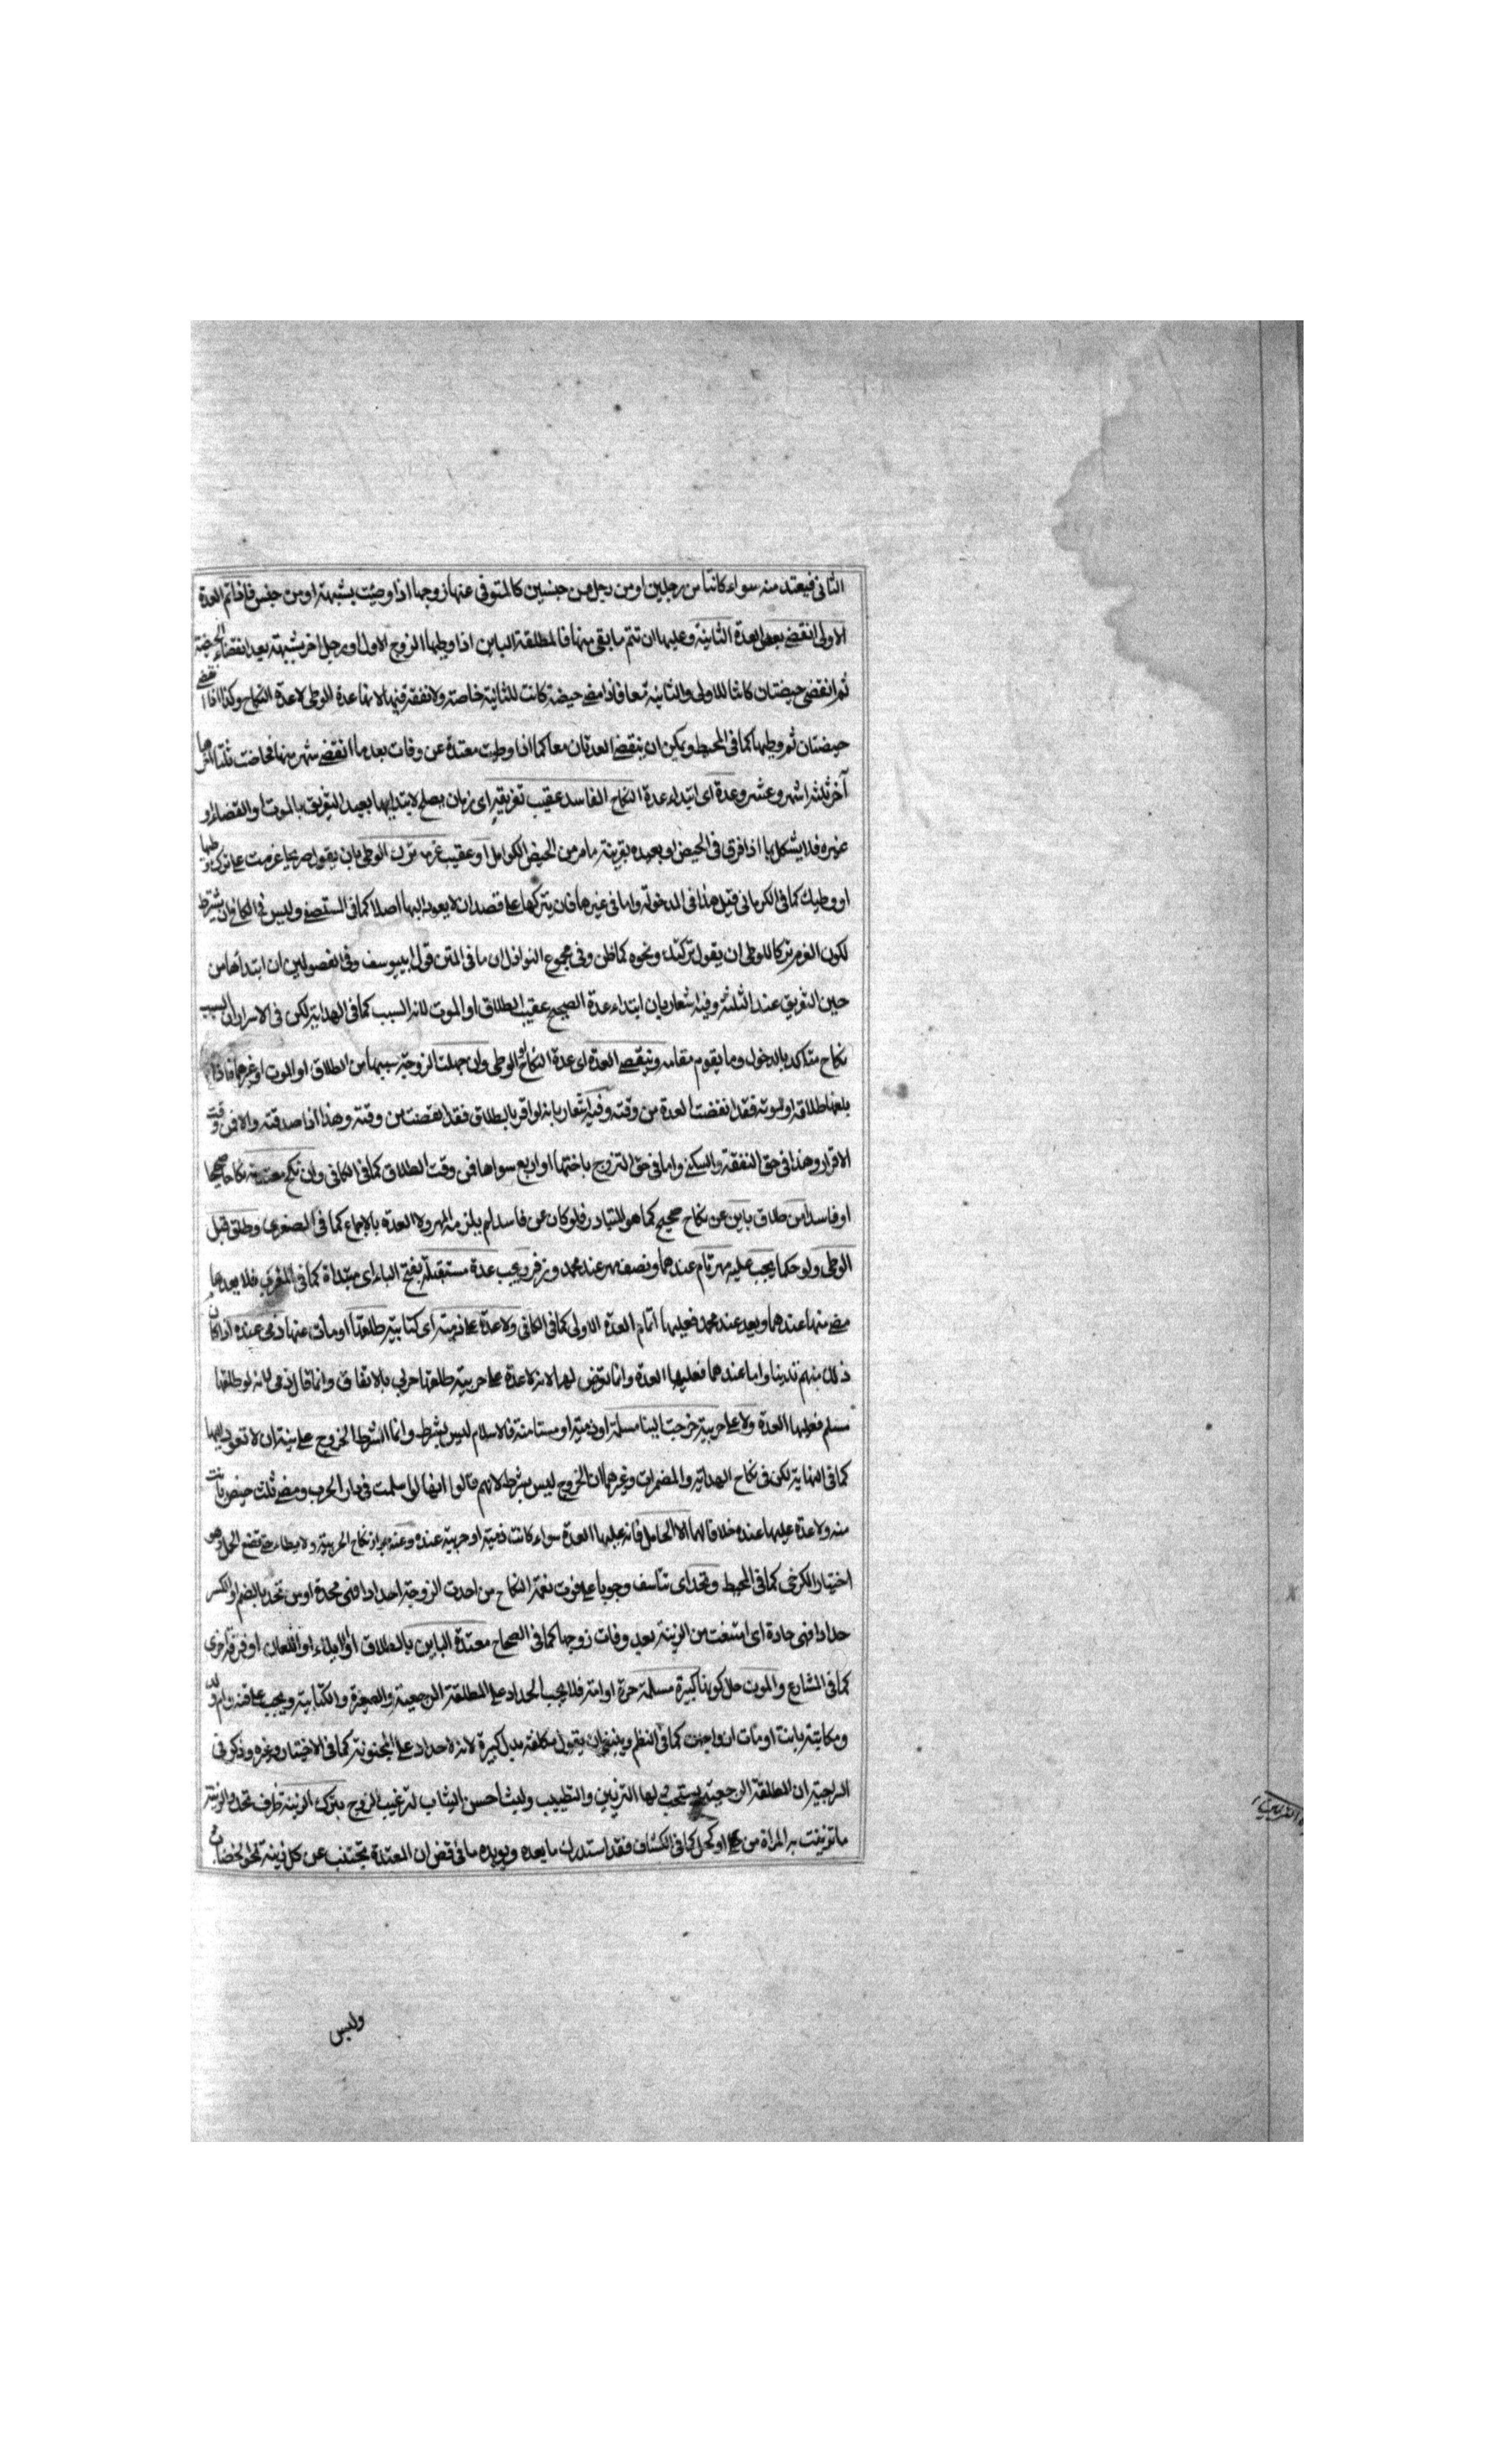 الثانى فيعتد منه سواء كانتا من رجلين او من رجل من جنسين كالمتوفى عنها زوجها اذا وطئت بشبهة او من جنس فاذا تم العدة
الاولى انقضى بعض العدة الثانية وعليها ان تتم ما بقى منها فالمطلقة الباين اذا وطيها الزوج الاول او رجل اخر بشبهة بعد انقضاء الحيضة
ثم انقضى حيضتان كانتا للاولى والثانية معا فاذا مضى حيضة كانت للثانية خاصة ولا نفقة فيها لانها عدة الوطى لا عدة النكاح وكذا اذا انقضى
حيضتان ثم وطيها كما فى المحيط ويمكن ان ينقضى العدتان معا كما اذا وطيت معتدة عن وفات بعد ما انقضى شهر منها فحاضت ثلثا
آخر ثلثة اشهر وعشر وعدة اى ابتداء عدة النكاح الفاسد عقيب تفريقه اى زمان يصلح لابتدايها بعيد التفريق بالموت او القضاء او
غيره فلا يشكل بما اذا فرق فى الحيض او بعيده بقرينة ما مر من الحيض الكوامل او عقيب عزمه ترك الوطى بان يقول صريحا عزمت على تركها
او وطيك كما فى الكرمانى قيل هذا فى المدخولة واما فى غيرها فان يتركها على قصد ان لا يعود اليها اصلا كما فى المستصفى وليس فى الكافى ان يشترط
لكون العزم تركا للوطى ان يقول تركتك ونحوه كما ظن وفى مجموع النوازل ان ما فى المتن قول ابى يوسف وفى الفصولين ان ابتداها من
حين التفريق عند الثلثة وفيه اشعار بان ابتداء عدة الصحيح عقيب الطلاق او الموت لانه السبب كما فى الهداية لكن فى الاسرار ان السبب
نكاح متاكد بالدخول وما يقوم مقامه وينقضى العدة اى عدة النكاح الوطى وان جهلت الزوجة سببها من الطلاق او الموت او غيرهما فاذا
بلغها طلاقه او موته فقد انقضت العدة من وقته وفيه اشعار بانه لو اقر بالطلاق فقد انقضت من وقته وهذا اذا صدقته والا فمن وقت
الاقرار وهذا فى حق النفقة والسكنى واما فى حق التزوج باختها او اربع سواها فمن وقت الطلاق كما فى الكافى وان نكح معتدته نكاحا صحيحا
او فاسدا من طلاق باين عن نكاح صحيح كما هو المتبادر فلو كان عن فاسد لم يلزمه المهر ولا العدة بالاجماع كما فى الصغرى وطلق قبل
الوطى ولو حكما يجب عليه مهر تام عندهما ونصف مهر عند محمد وزفر ويجب عدة مستقبلة بفتح الباء اى مبتداة كما فى المغرب فلا يعد ما
مضى منها عندهما ويعد عند محمد فعليها اتمام العدة الاولى كما فى الكافى ولا عدة على ذمية اى كتابية طلقها او مات عنها ذمى عنده اذا كان
ذلك منهم تدينا واما عندهما فعليها العدة وانما تعرض لها لانه لا عدة على حربية طلقها حربى بالاتفاق وانما قال ذمى لانه لو طلقها
مسلم فعليها العدة ولا على حربية خرجت الينا مسلمة او ذمية او مستامنة فالاسلام ليس بشرط وانما الشرط الخروج على نية ان لا تعود اليها
كما فى النهاية لكن فى نكاح الهداية والمضمرات وغيرهما ان الخروج ليس بشرط لانهم قالوا انها لو اسلمت فى دار الحرب ومضى ثلث حيض بانت
منه ولا عدة عليها عنده خلافا لهما الا الحامل فانه عليها العدة سواء كانت ذمية او حربية عنده وعنه جواز نكاح الحربية ولا يطاء حتى تضع الحمل وهو
اختيار الكرخى كما فى المحيط وتحد اى تتاسف وجوبا على فوت نعمة النكاح من احدت الزوجة احدادا فهى محدة او من تحد بالضم او الكسر
حدادا فهى حادة اى امتنعت من الزينة بعد وفات زوجها كما فى الصحاح معتدة الباين بالطلاق او الايلاء او اللعان او فرقة اخرى
كما فى المشارع والموت حال كونها كبيرة مسلمة حرة او امة فلا يجب الحداد على المطلقة الرجعية والصغيرة والكتابية ويجب على قنة وام ولد
ومكاتبة بانت او مات ازواجهن كما فى النظم وينبغى ان يقول مكلفة بدل كبيرة لانه لا حداد على المجنونة كما فى الاختيار وغيره وذكر فى
الرجعية ان المطلقة الرجعية يستحب لها التزيين والتطيب ولبس احسن الثياب لترغيب الزوج بترك الزينة ظرف تحد والزينة
ما تزينت به المراة من او كحل كما فى الكشاف فقد استدرك ما بعده ويويده ما فى قض ان المعتدة تجتنب عن كل زينة نحو الخضاب
ولبس